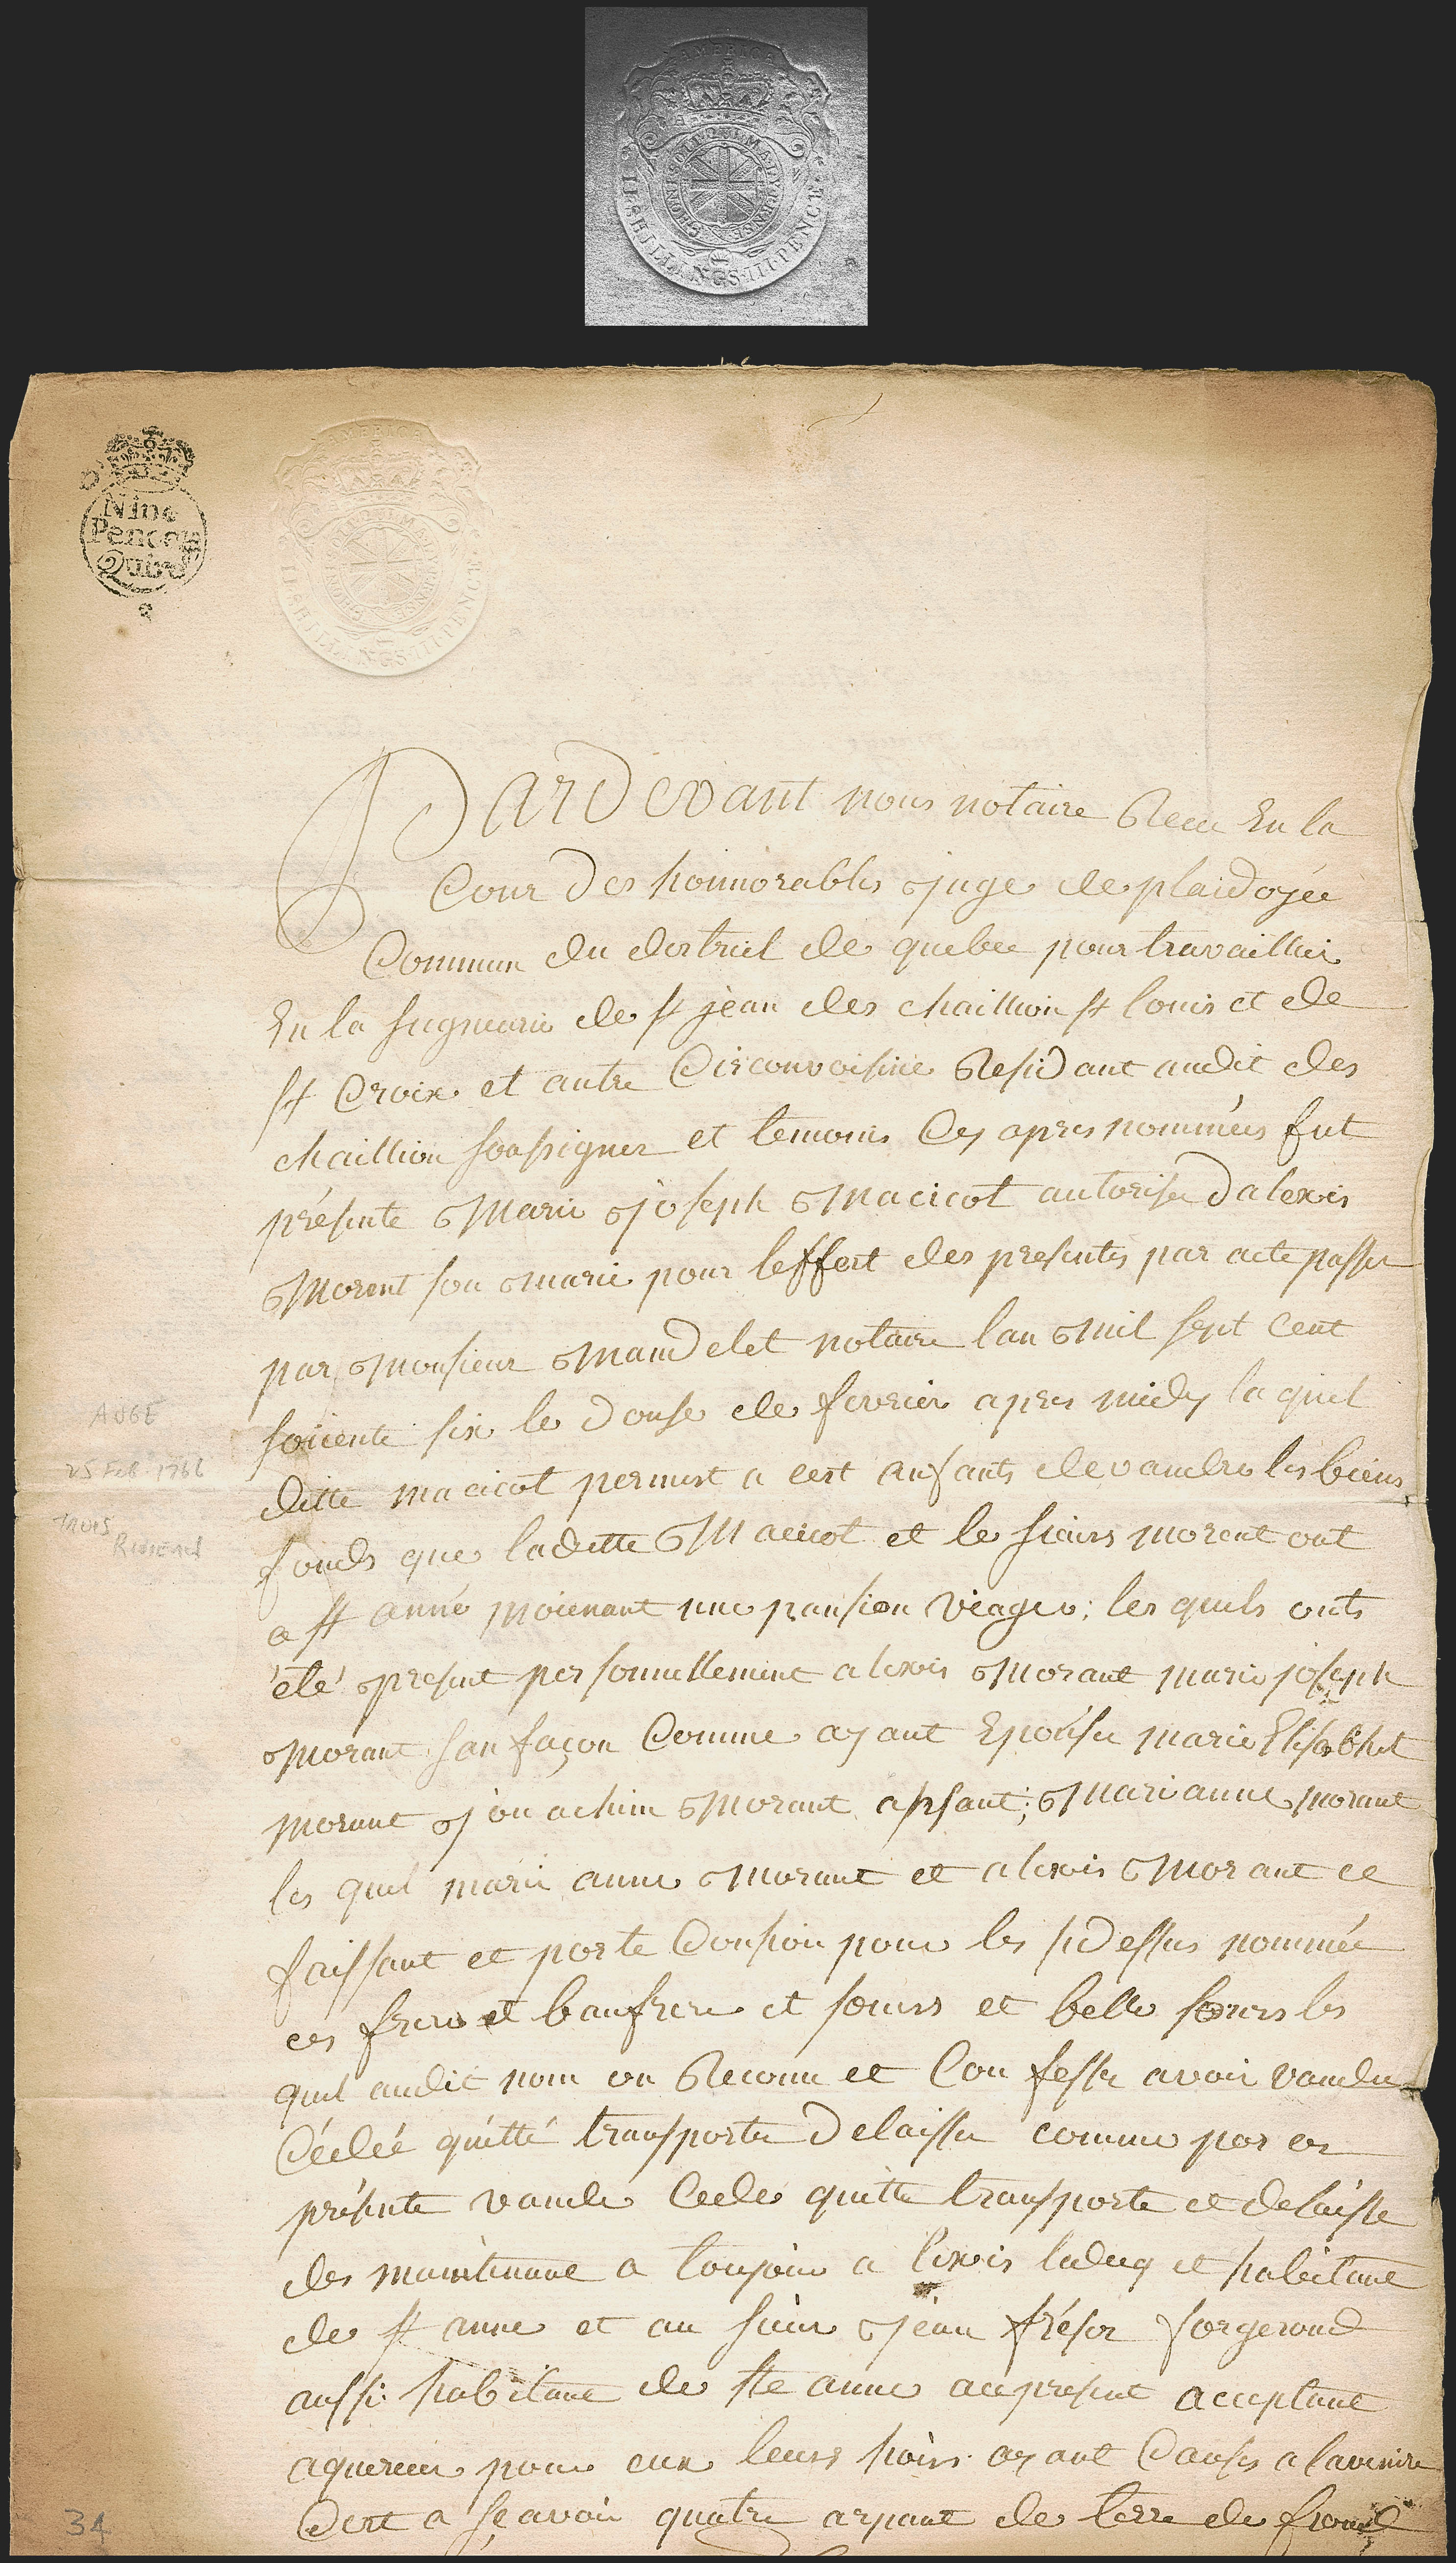 AMERICA
HONI SOIT QUI MAL Y PENSE
II SHILLINGS III PENCE
Nine
Pence
Quire
AMERICA
II SHILLINGS III PENCE
ParDevant nous notaire Recu En la
Cour des honnorables juge de plaidoyée
Commun du distruct de quebec pour travailler
En la Seigneurie de st jean des chaillion st louis et de
st Croix et autre Circonvoisine Residant audit des
chaillion soussigner et temoins Cy apres nommées fut
présente Marie joseph Macicot autoriser d'alexis
Morent son marie pour leffert des presentes par acte passer
par Monsieur Mandelet notaire lan Mil sept Cent
soiciente six le douse de fevrier apres midy la quel
ditte macicot permest a cest anfants de vandre les biens
fonds que laditte Macicot et le sieurs morent ont
a st anne moienant une pansion viager; les quels onts
été present personnellement alexis Morant marie joseph
Morant sanfaçon Comme ayant Epousée marie Elisabhet
morant jouachim Morant apsant; Marianne morant
les quel marie anne Morant et alexis Morant ce
faissant et porte Consion pour les sidessus nommée
ces frere et baufrere et soeurs et belle soeurs les
quel audit nom on Reconu et Confesser avoir vandu
Cédéé quitté transporter Delaisser comme par ces
présente vande Cede quitte transporte et delaisse
des maintenant a toujour a lexois leducq et habitant
de st anne et au sieur jean frésor forgerond
aussi habitant de ste anne ace present acceptant
aquereur pour eux leurs hoirs ayant Causes a lavenire
Cest a sçavoir quatre arpant de terre de frond
ANGE
25 Feb. 1766
TROIS
RIVIERES
34